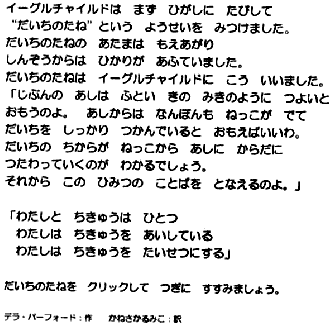 イーグルチャイルドは まず ひがしに たびして
“だいちのたね”という ようせいを みつけました。
だいちのたねの あたまは もえあがり
しんぞうからは ひかりが あふていました。
だいちのたねは イーグルチャイルドに こう いいました。
「じぶんの あしは ふとい きの みきのように つよいと
おもうのよ。 あしからは なんぼんも ねっこが でて
だいちを しっかり つかんでいると おもえばいいわ。
だいちの ちからが ねっこから あしに からだに
つたわっていくのが わかるでしょう。
それから この ひみつの ことばを となえるのよ。」
「わたしと ちきゅうは ひとつ
わたしは ちきゅうを あいしている
わたしは ちきゅうを たいせつにする」
だいちのたねを クリックして つぎに すすみましょう。
デラ・バーフォード：作 かねさかるみこ：訳